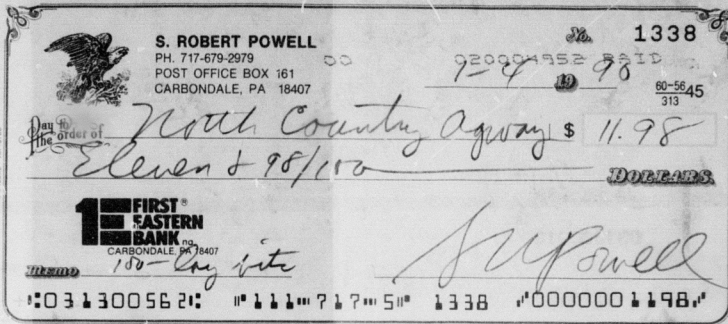 S. ROBERT POWELL
PH. 717-679-2979
POST OFFICE BOX 161
CARBONDALE, PA 18407
No. 1338
00 020004952 PAID
1-4 19 90
60-56 45
313
Pay to the order of North Country Agway $ 11.98
Eleven & 98/100 DOLLARS
1E FIRST EASTERN BANK n.a.
CARBONDALE, PA 18407
MEMO 100-
S R Powell
⑆031300562⑆ ⑈111⑉717⑉5⑈ 1338 ⑇0000001198⑇